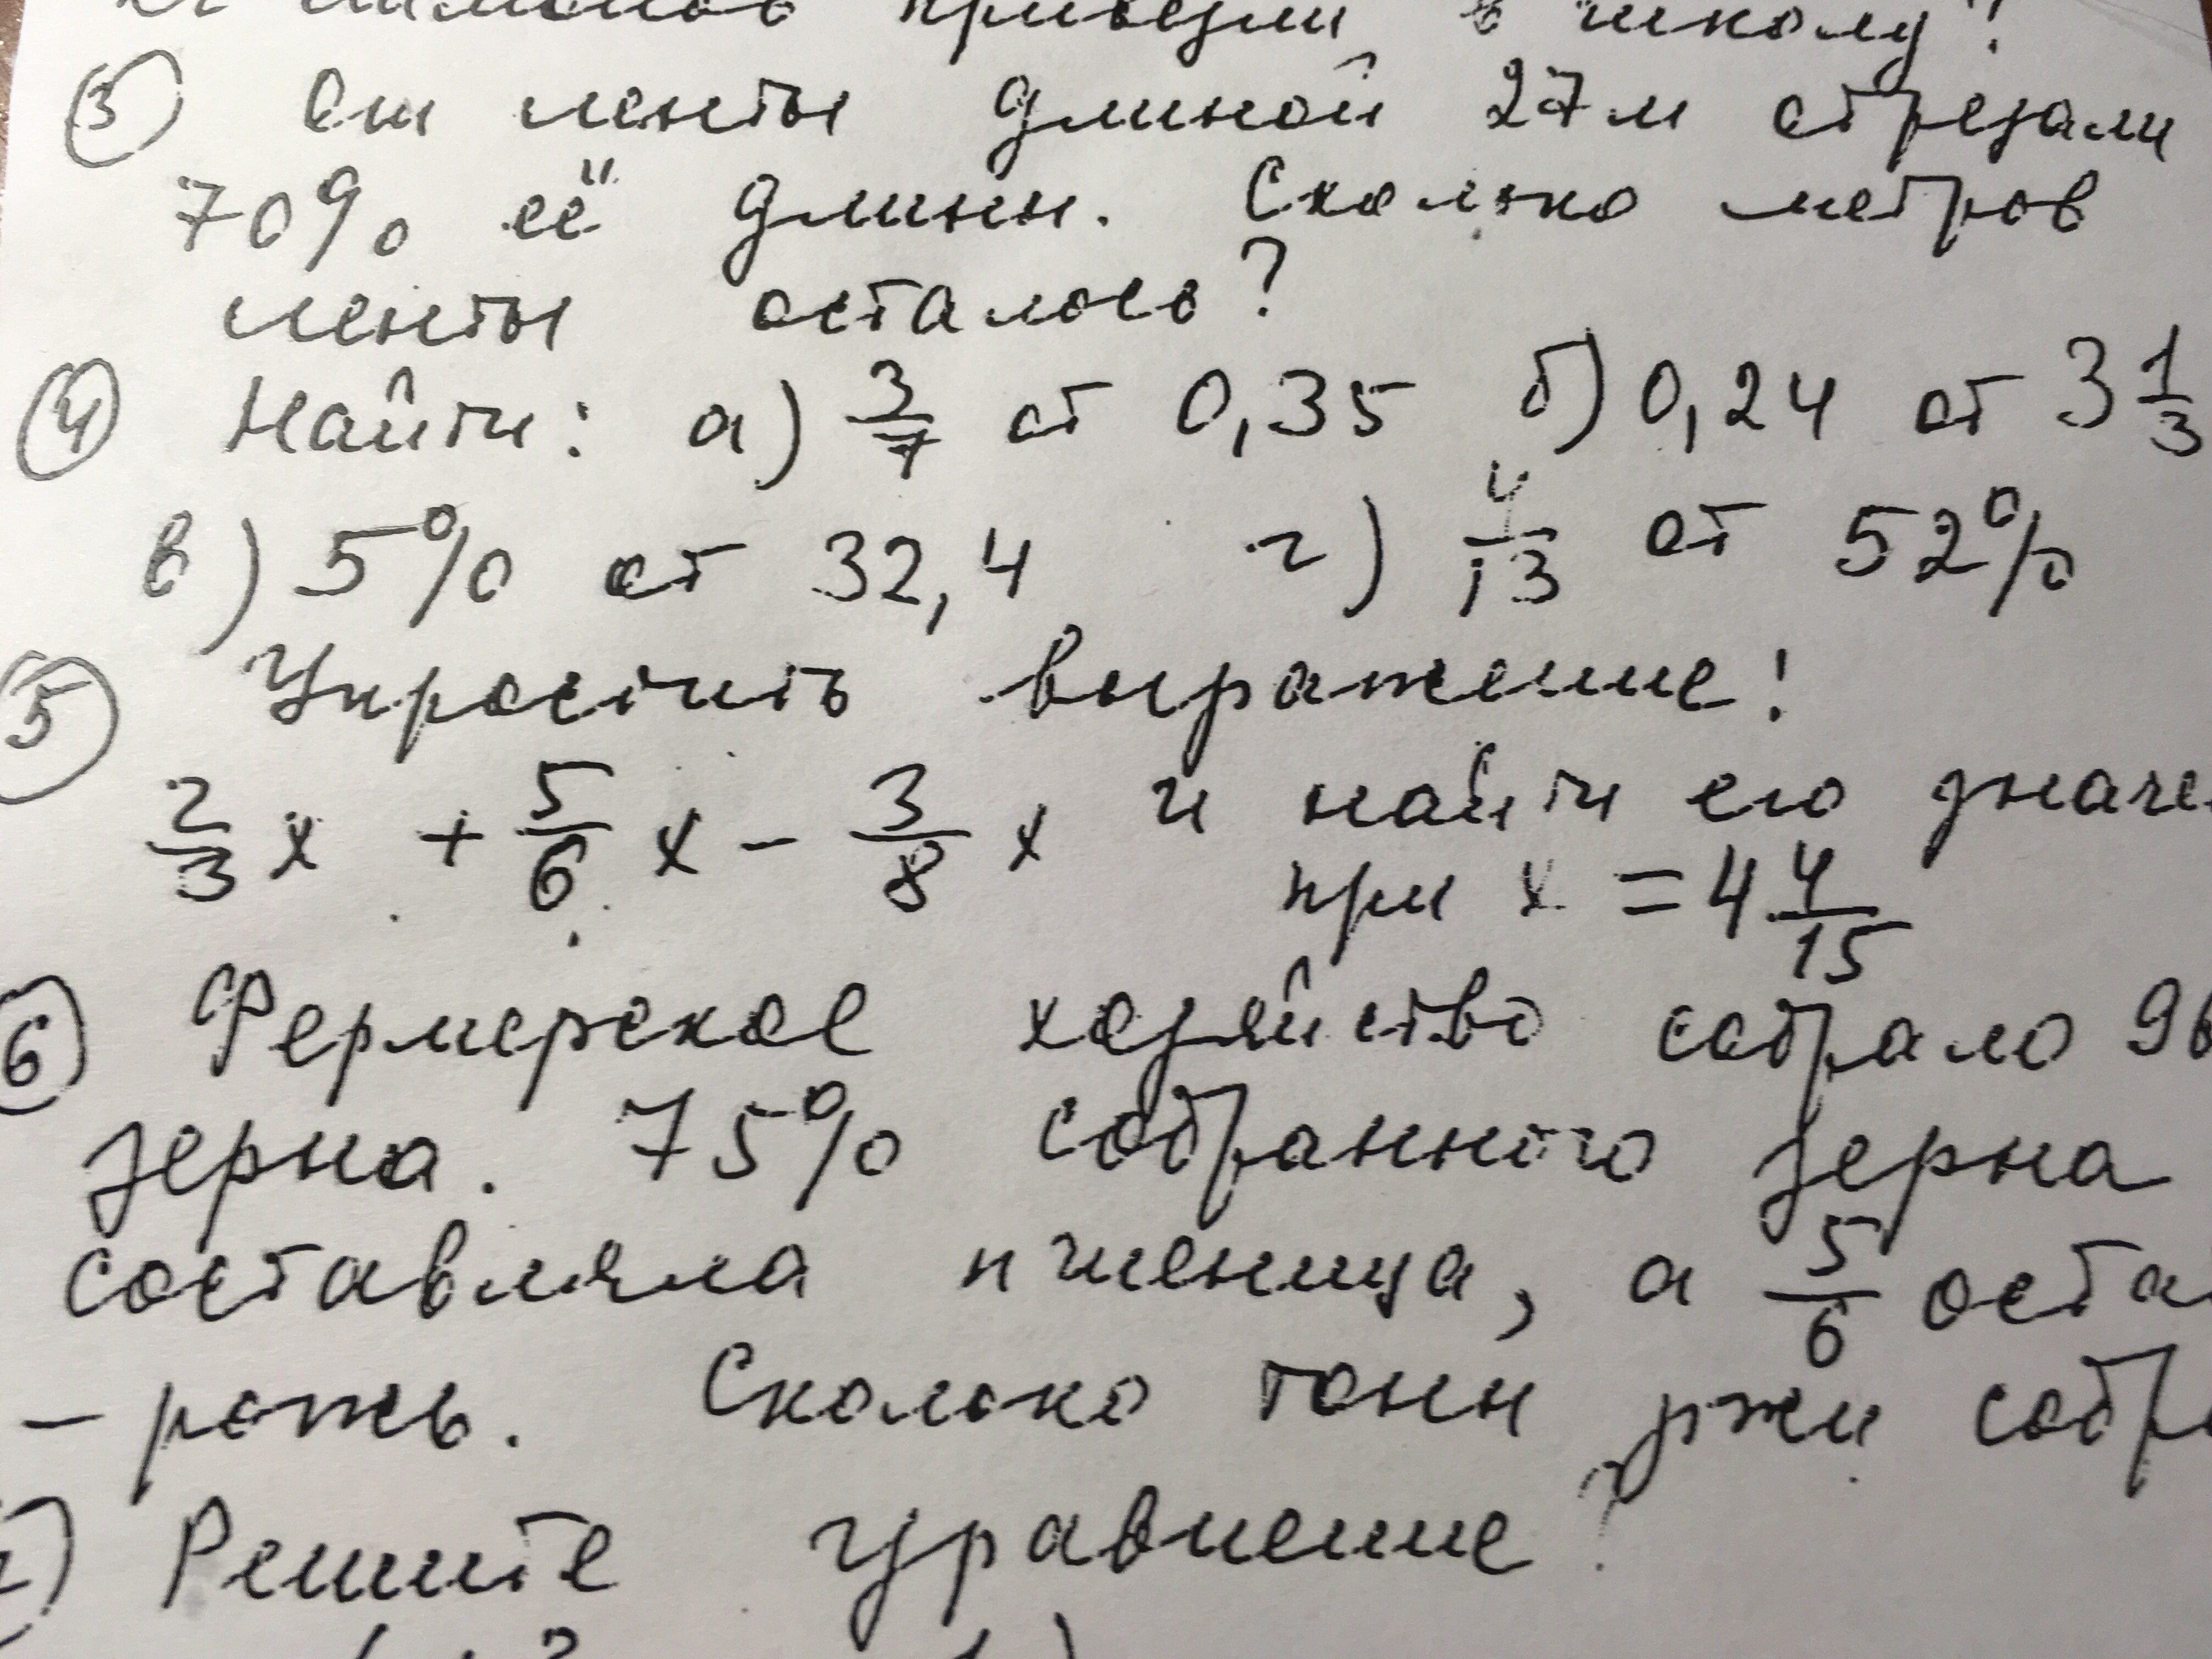 привезли в школу?
③ От ленты длиной 27м отрезали
70% её длины. Сколько метров
ленты осталось?
④ Найти: а) 3/7 от 0,35 б) 0,24 от 3 1/3
в) 5% от 32,4 г) 4/13 от 52%
⑤ Упростить выражение!
2/3 x + 5/6 x - 3/8 x и найти его значе
при x = 4 4/15
⑥ Фермерское хозяйство собрало 96
зерна. 75% собранного зерна
составляла пшеница, а 5/6 оста
- рожь. Сколько тонн ржи собр
Решите уравнение?